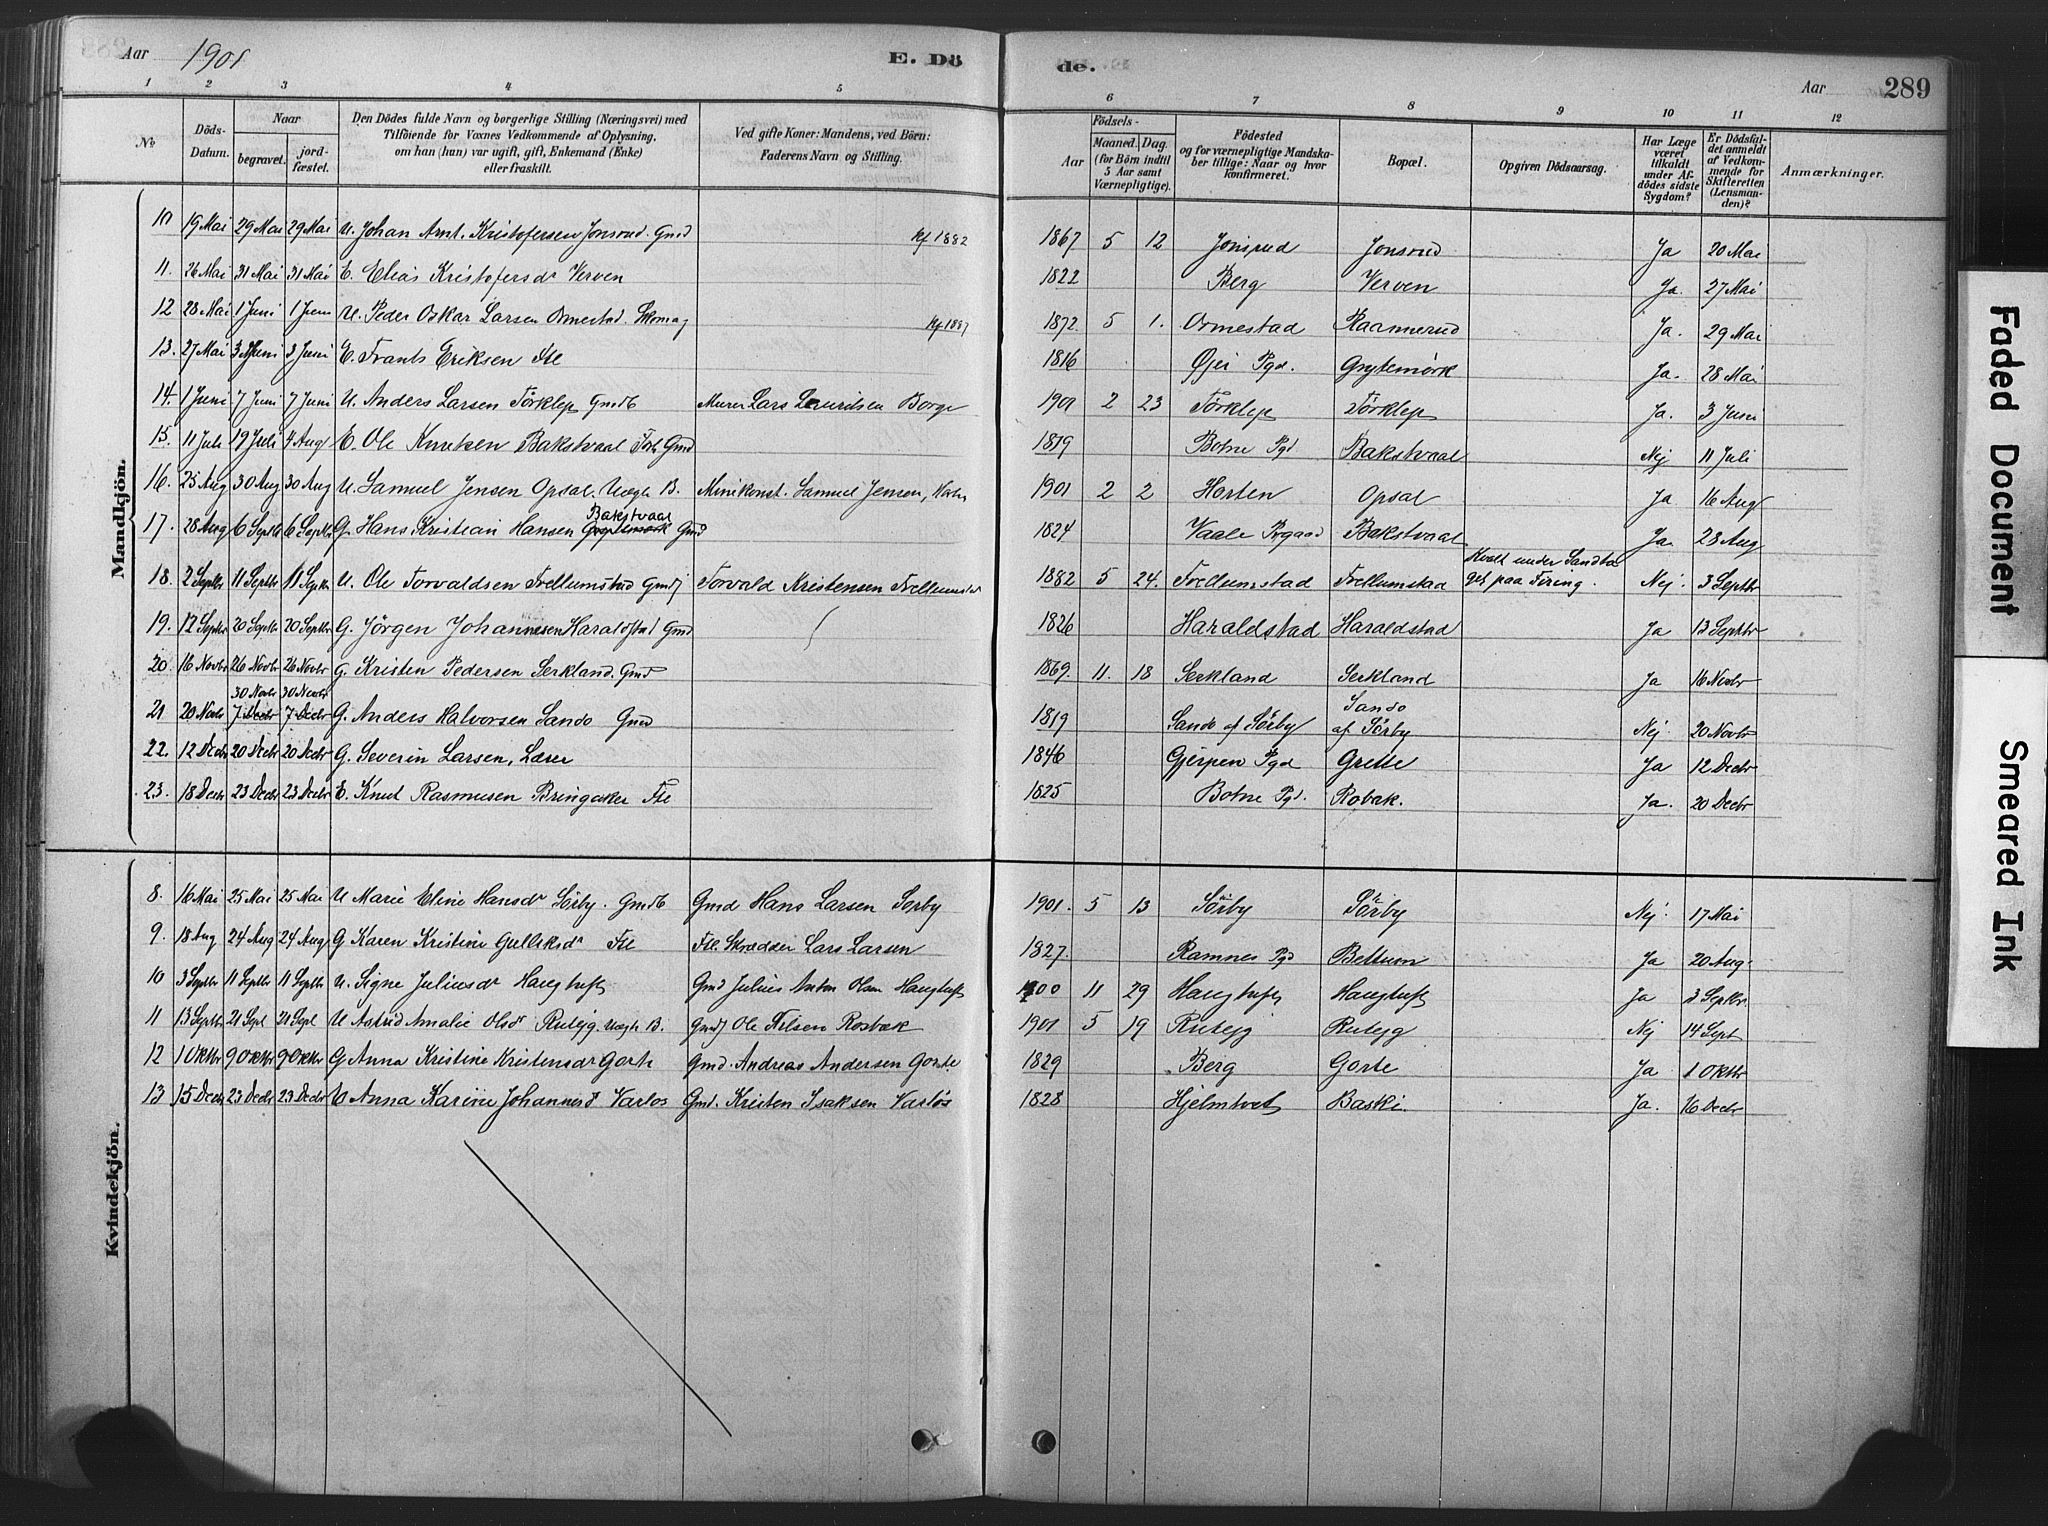 Aar 1901 E. Dö de. Aar 289
1 2 3 4 5 6 7 8 9 10 11 12
No Döds-Datum. Naar begravet. jordfæstet. Den Dödes fulde Navn og borgerlige Stilling (Næringsvei) med Tilföiende for Voxnes Vedkommende af Oplysning. om han (hun) var ugift, gift, Enkemand (Enke) eller fraskilt. Ved gifte Koner: Mandens, ved Börn: Faderens Navn og Stilling. Födsels- Aar Maaned. Dag. (for Börn indtil 5 Aar samt Værnepligtige). Födested og for værnepligtige Mandskaber tillige: Naar og hvor konfirmeret. Bopæl. Opgiven Dödsaarsag. Har Læge været tilkaldt under Afdödes sidste Sygdom? Er Dödsfaldet anmeldt af Vedkommende for Skifteretten (Lensmanden)? Anmærkninger.
Mandkjön.
10 19 Mai 29 Mai 29 Mai U. Johan Arnt Kristofersen Jonsrud. Gmd Kf 1882 1867 5 12 Jonsrud Jonsrud Ja 20 Mai
11. 26 Mai 31 Mai 31 Mai E. Elias Kristofersdr Verven 1822 Berg Verven Ja. 27 Mai
12 28 Mai 1 Juni 1 Juni U. Peder Oskar Larsen Ormestad. Skomag Kf 1887 1872. 5 1. Ormestad Raannerud Ja. 29 Mai
13. 27 Mai 3 Juni 3 Juni E. Frants Eriksen Ftl 1816 Øjer Pgd. Grytemörk Ja. 28 Mai
14. 1 Juni 7 Juni 7 Juni U. Anders Larsen Törklep Gmdb Murer Lars Lauritsen Borge 1901 2 23 Törklep Törklep Ja. 3 Juni
15. 11 Juli 19 Juli 4 Aug E. Ole Knutsen Bakstvaal Gmd 1819 Botne Pgd Bakstvaal Nej 11 Juli
16. 25 Aug 30 Aug 30 Aug U. Samuel Jensen Opsal, Uægte B. Minikonst. Samuel Jensen, 1901 2 2 Horten Opsal Ja 16 Aug
17. 28 Aug 6 Septbr 6 Septbr G. Hans Kristian Hansen Bakstvaal Gmd 1824 Vaale Prgaard Bakstvaal Ja 28 Aug
18. 2 Septbr 11 Septbr 11 Septbr U. Ole Torvaldsen Trellumstad Gmdj Torvald Kristensen Trellumstad 1882 5 24. Trellumstad Trellumstad Kvalt under Sandtaget paa Firing. Nej. 3 Septbr
19. 12 Septbr 20 Septbr 20 Septbr G. Jörgen Johannesen Haraldstad Gmd 1826 Haraldstad Haraldstad Ja 13 Septbr
20. 16 Novbr 26 Novbr 26 Novbr G. Kristen Pedersen Serkland. Gmd 1869. 11. 18 Serkland Serkland Ja 16 Novbr
30 Novbr 30 Novbr
21 20 Novbr 7 Decbr 7 Decbr G. Anders Halvorsen Sando Gmd 1819 Sando af Sørby Sando af Sørby Nej. 20 Novbr
22. 12 Decbr 20 Decbr 20 Decbr G. Severin Larsen, Lærer 1846 Gjerpen Pgd Grette Ja 12 Decbr
23. 18 Decbr 23 Decbr 23 Decbr E. Knut Rasmusen Bringaker Ftl 1825 Botne Pgd. Robak. Ja. 20 Decbr
Kvindekjön.
8. 16 Mai 25 Mai 25 Mai U Marie Eline Hansdr Sörby. Gmdb Gmd Hans Larsen Sorby 1901. 5 13 Sörby Sörby Nej. 17 Mai
9. 18 Aug 24 Aug 24 Aug G Karen Kristine Gulliksdr Ftl Ftl. Skrædder Lars Larsen 1827. Ramnes Pgd Bettum Ja 20 Aug.
10 3 Septbr 11 Septbr 11 Septbr U. Signe Juliusdr Haugtuft Gmd Julius Anton Olsen Haugtuft 1900 11 29 Haugtuft Haugtuft Ja 3 Septbr.
11 13 Septbr 21 Sept 21 Sept U Astrid Amalie Olsdr Rutejg. Uægte B. Gmdj Ole Nilsen Rosbæk 1901 5 19 Rutejg Rutejg Nej 14 Sept
12 1 Oktbr 9 Oktbr 9 Oktbr G Anna Kristine Kristensdr Gorte Gmd. Andreas Andersen Gorte 1829 Berg Gorte Ja 1 Oktbr
13 15 Decbr 23 Decbr 23 Decbr U Anna Karine Johannesd Varlos Gmd. Kristen Isaksen Varlös 1828 Hjelmtvet Baski. Ja. 16 Decbr
Faded Document
Smeared Ink